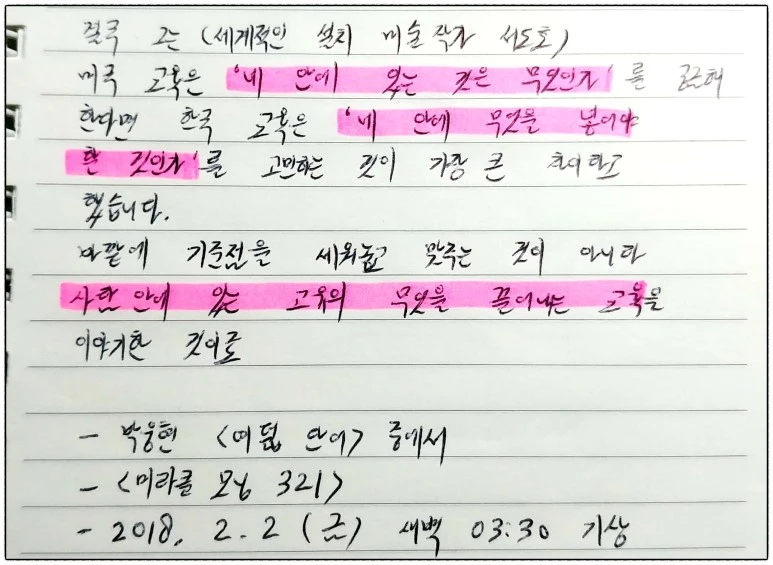 결국 그는 (세계적인 설치 미술작가 서도호)
미국 교육은 '네 안에 있는 것은 무엇인가'를 궁금해
한다면 한국 교육은 '네 안에 무엇을 넣어야
할 것인가'를 고민하는 것이 가장 큰 차이라고
했습니다.
바깥에 기준점을 세워놓고 맞추는 것이 아니라
사람 안에 있는 고유의 무엇을 끌어내는 교육을
이야기한 것이죠
- 박웅현 <여덟 단어> 중에서
- <미라클 모닝 321>
- 2018. 2. 2 (금) 새벽 03:30 기상